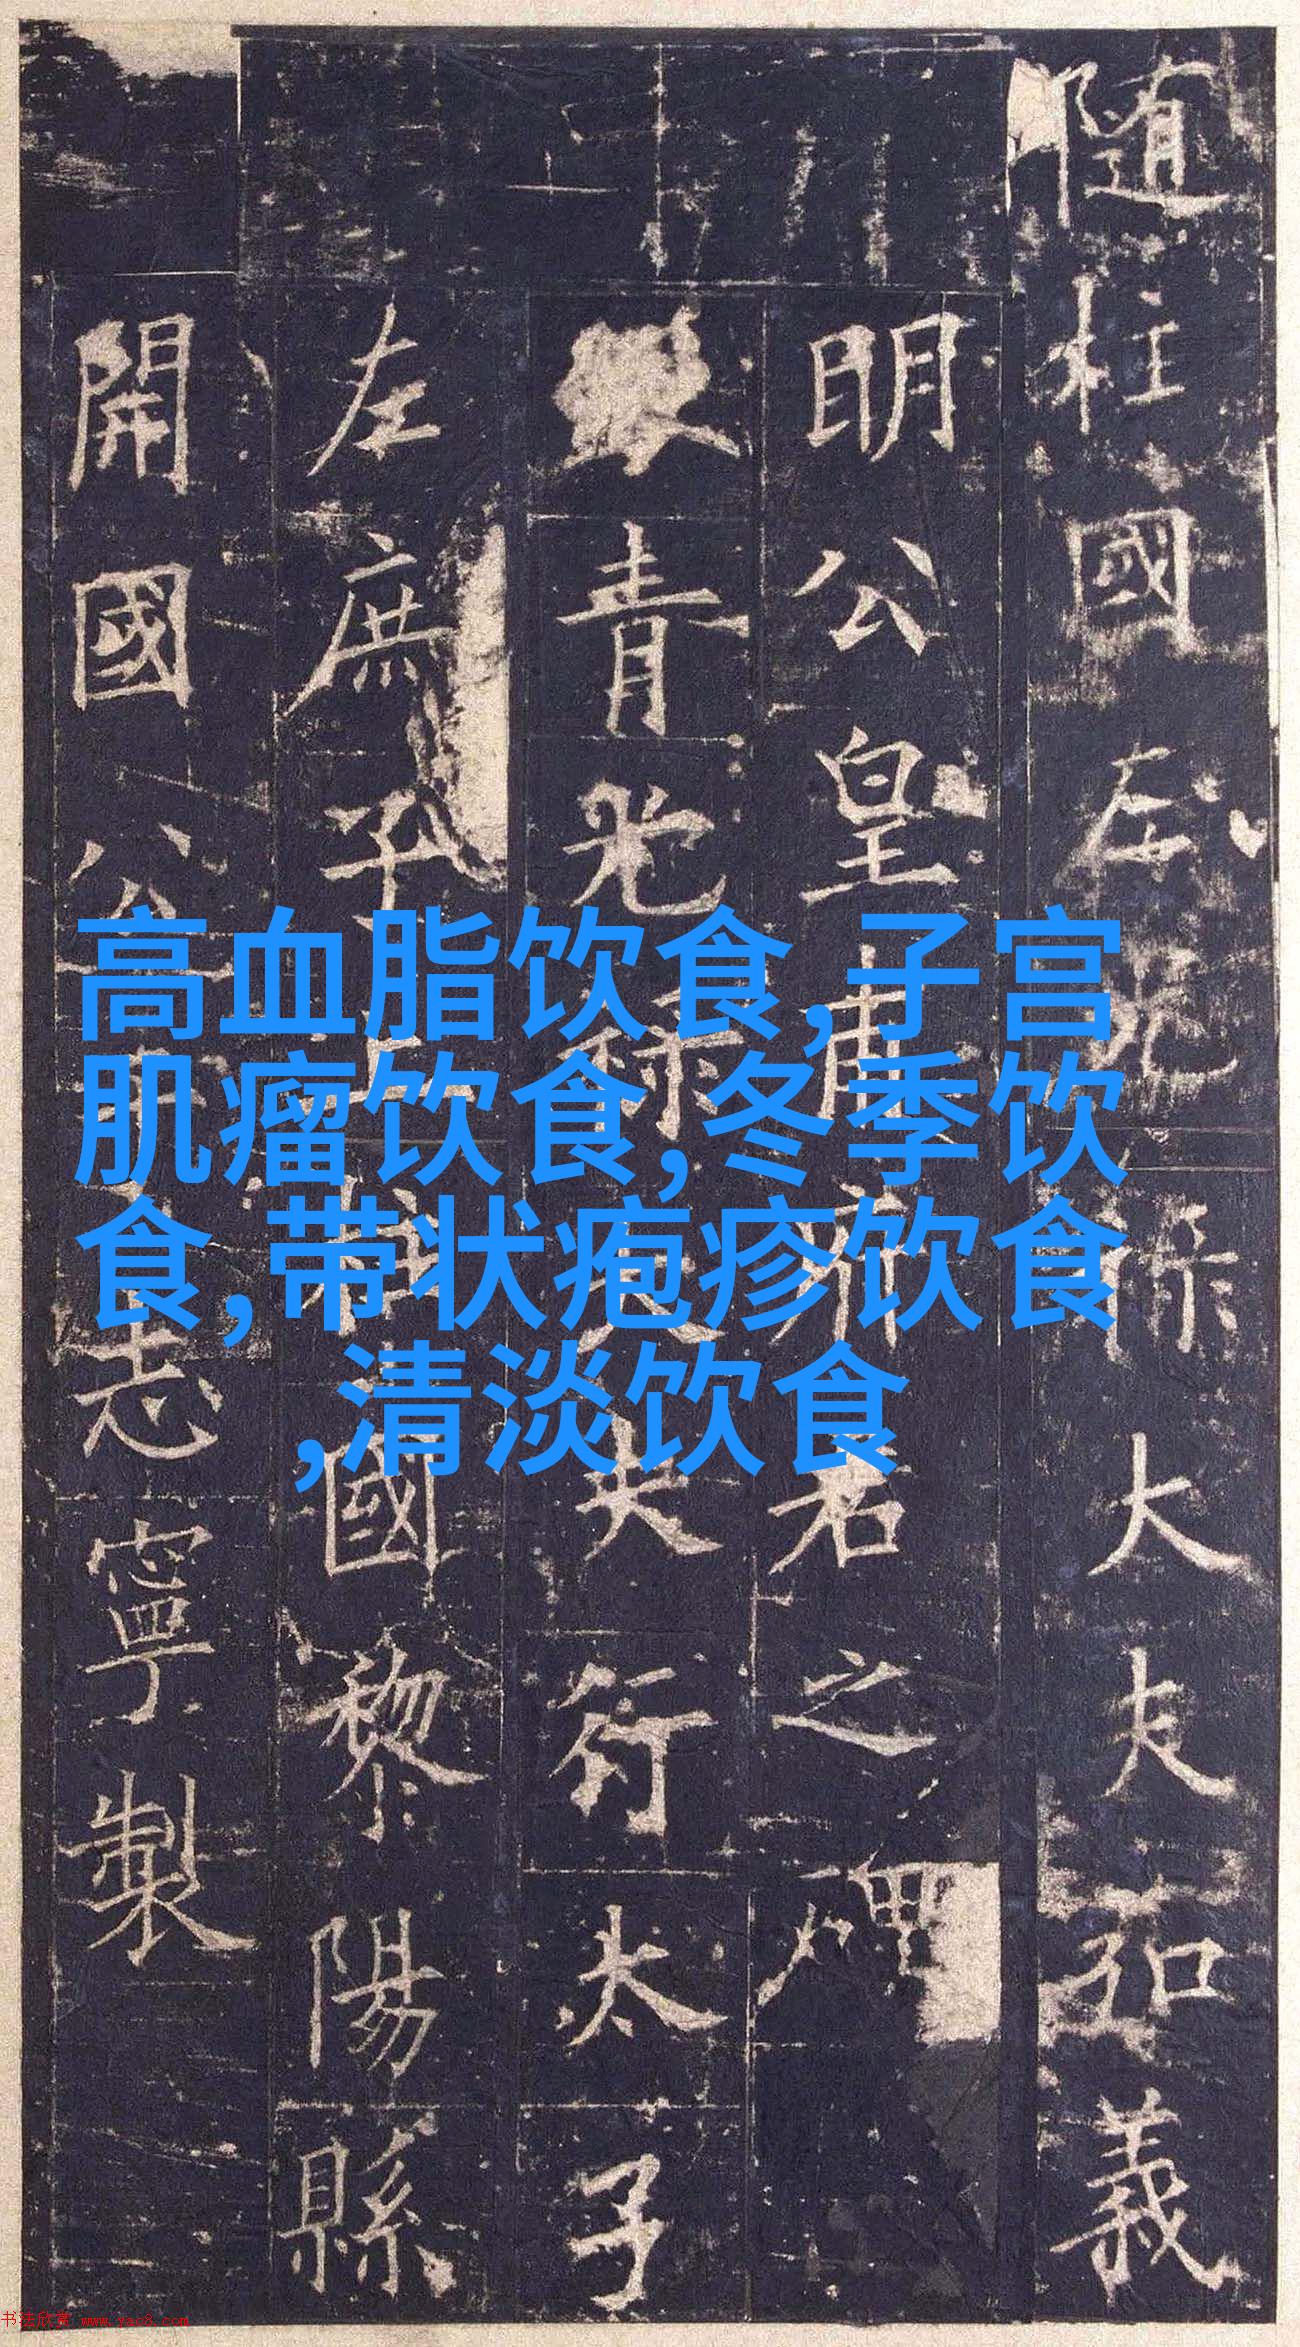 隨柱國左光祿大夫弘義
明公皇甫府君之碑
銀青光祿大夫行太子
左庶子上柱國黎陽縣
開國公于志寧製
高血脂饮食,子宫
肌瘤饮食,冬季饮
食,带状疱疹饮食
,清淡饮食
书法欣赏 www.yac8.com